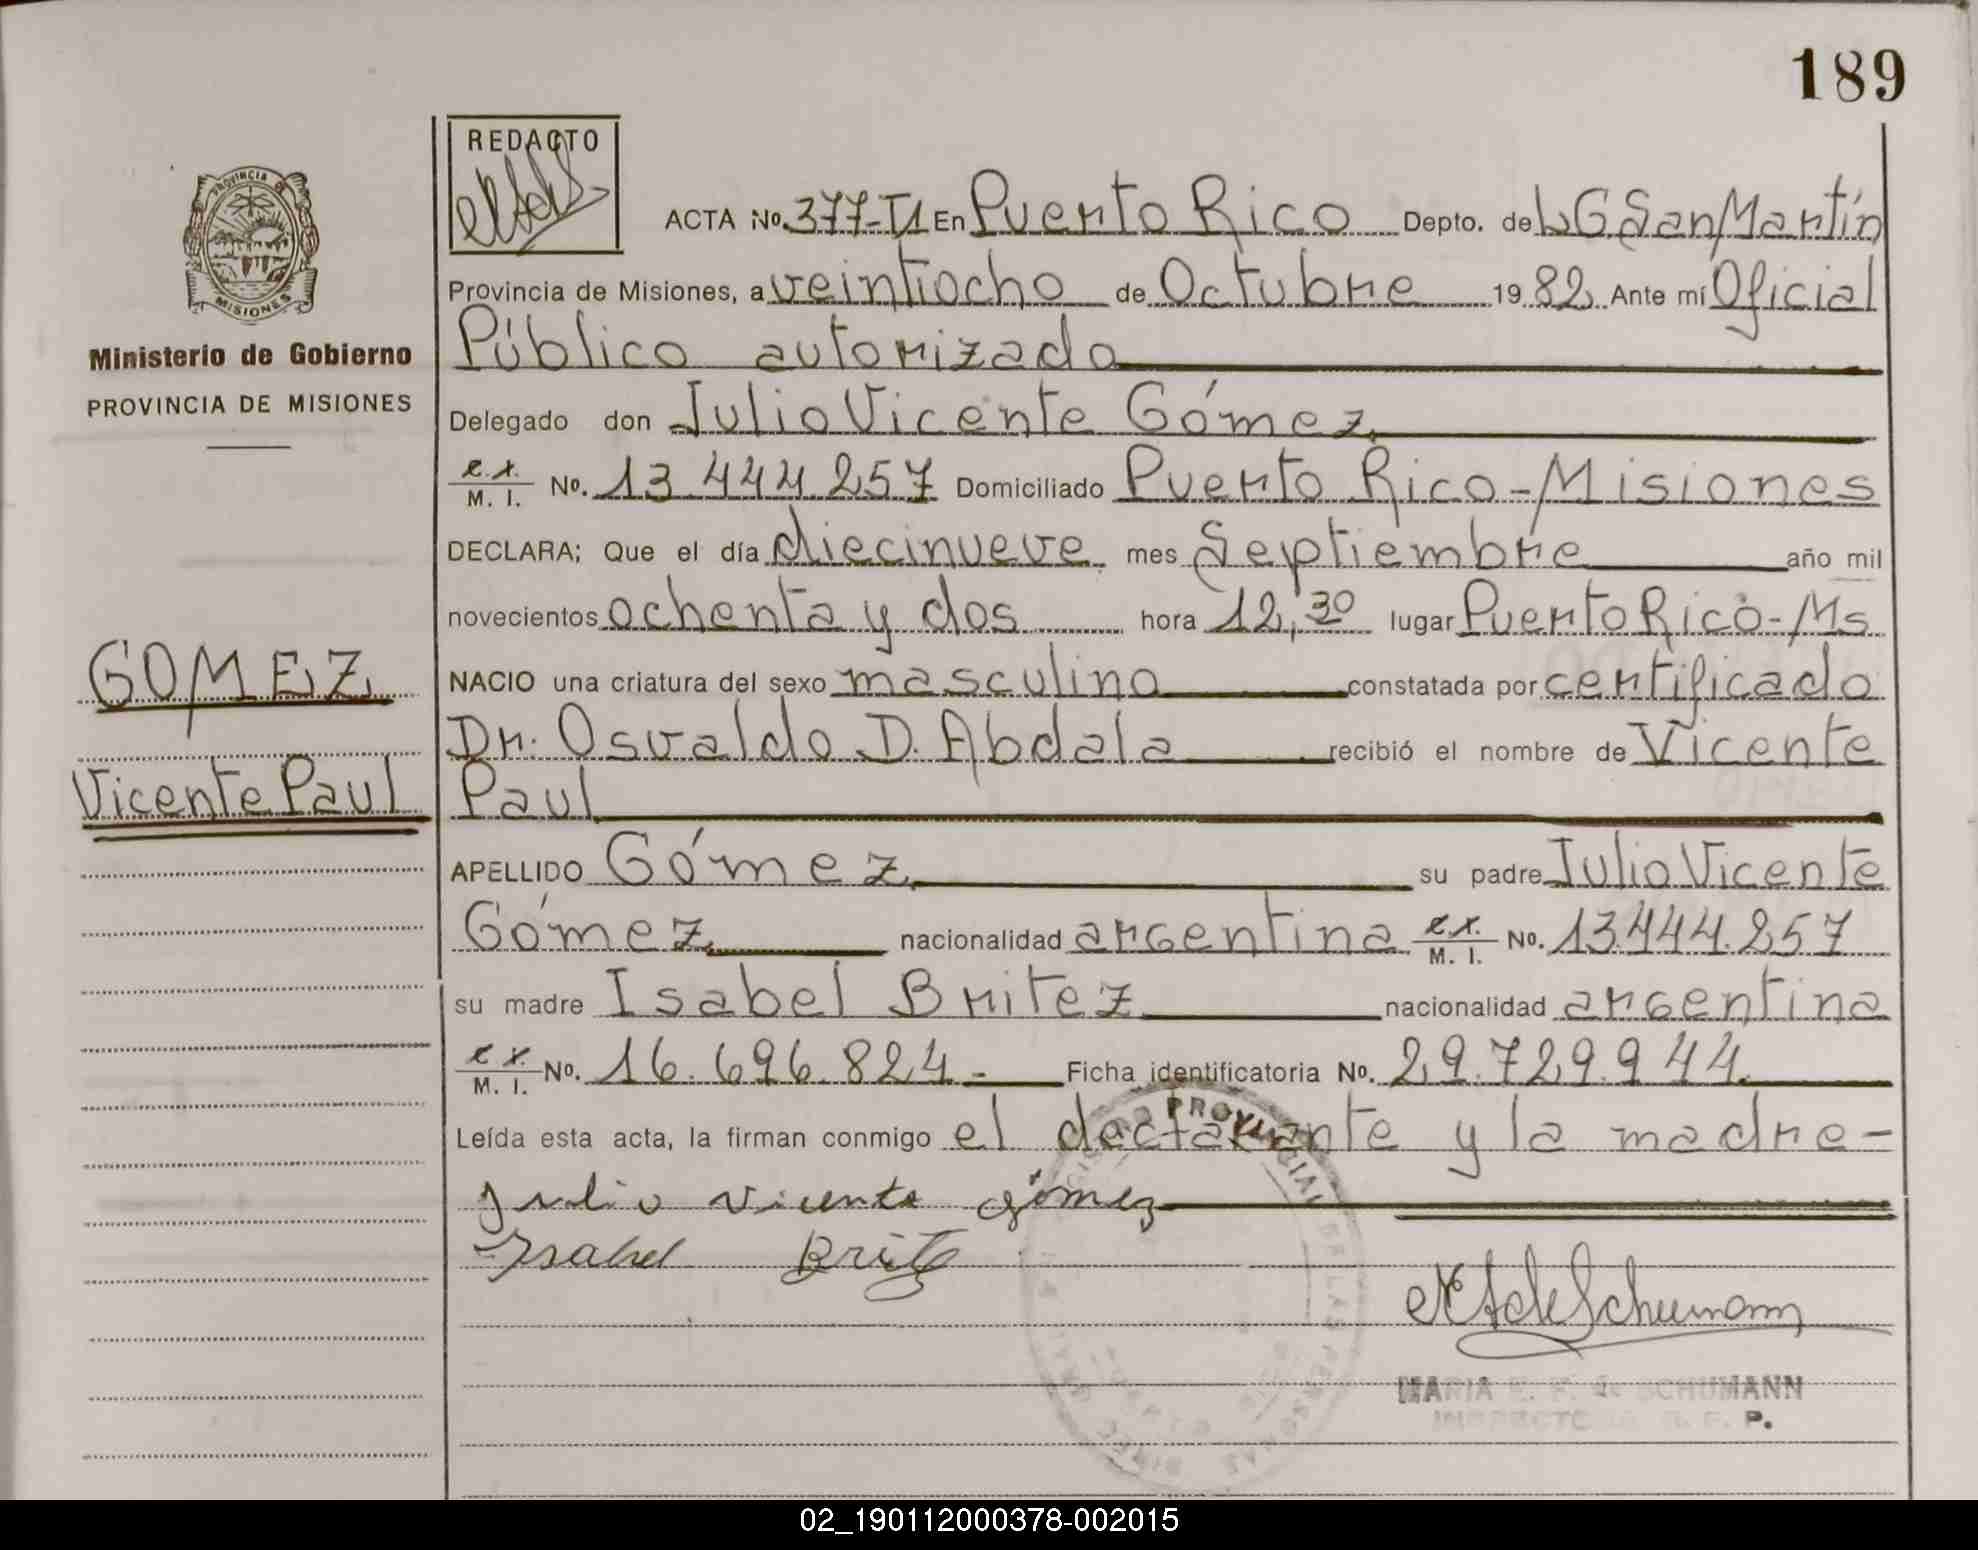 189
REDACTO
PROVINCIA DE
MISIONES
Ministerio de Gobierno
PROVINCIA DE MISIONES
GOMEZ
Vicente Paul
ACTA No. 377-T1 En Puerto Rico Depto. de L G San Martín
Provincia de Misiones, a veintiocho de Octubre 1982 Ante mí Oficial
Público autorizado
Delegado don Julio Vicente Gómez
M. I. No. 13.444.257 Domiciliado Puerto Rico - Misiones
DECLARA; Que el día diecinueve mes Septiembre año mil
novecientos ochenta y dos hora 12,30 lugar Puerto Rico - Ms
NACIO una criatura del sexo masculino constatada por certificado
Dr. Osvaldo D. Abdala recibió el nombre de Vicente
Paul
APELLIDO Gómez su padre Julio Vicente
Gómez nacionalidad argentina M. I. No. 13.444.257
su madre Isabel Britez nacionalidad argentina
M. I. No. 16.696.824.- Ficha identificatoria No. 29.729.944
Leída esta acta, la firman conmigo el declarante y la madre-
Julio Vicente Gómez
Isabel Britez
PROVINCIAL
DE LAS PERSONAS
MARIA E. F. de SCHUMANN
02_190112000378-002015